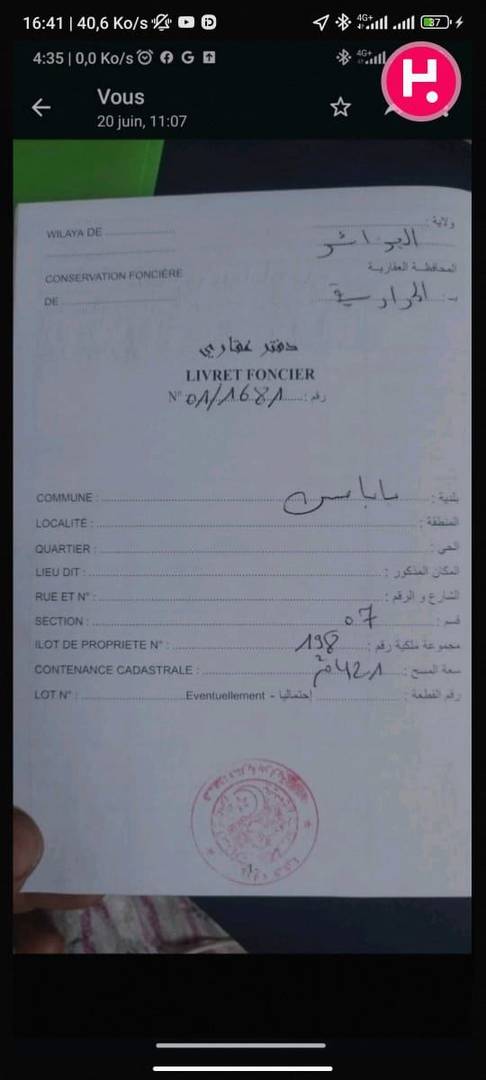 16:41 | 40,6 Ko/s
4G+
37
4:35 | 0,0 Ko/s
4G+
H.
Vous
20 juin, 11:07
WILAYA DE
ولاية :
الجزائر
CONSERVATION FONCIÈRE
المحافظة العقارية
DE
دفتر عقاري
LIVRET FONCIER
N° 01/1681 رقم :
COMMUNE : بابا حسن بلدية :
LOCALITÉ : المنطقة :
QUARTIER : الحي :
LIEU DIT : المكان المذكور :
RUE ET N° : الشارع و الرقم :
SECTION : 07 قسم :
ILOT DE PROPRIETE N° : 198 مجموعة ملكية رقم :
CONTENANCE CADASTRALE : 421 م2 سعة المسح :
LOT N° : Eventuellement - إحتماليا رقم القطعة :